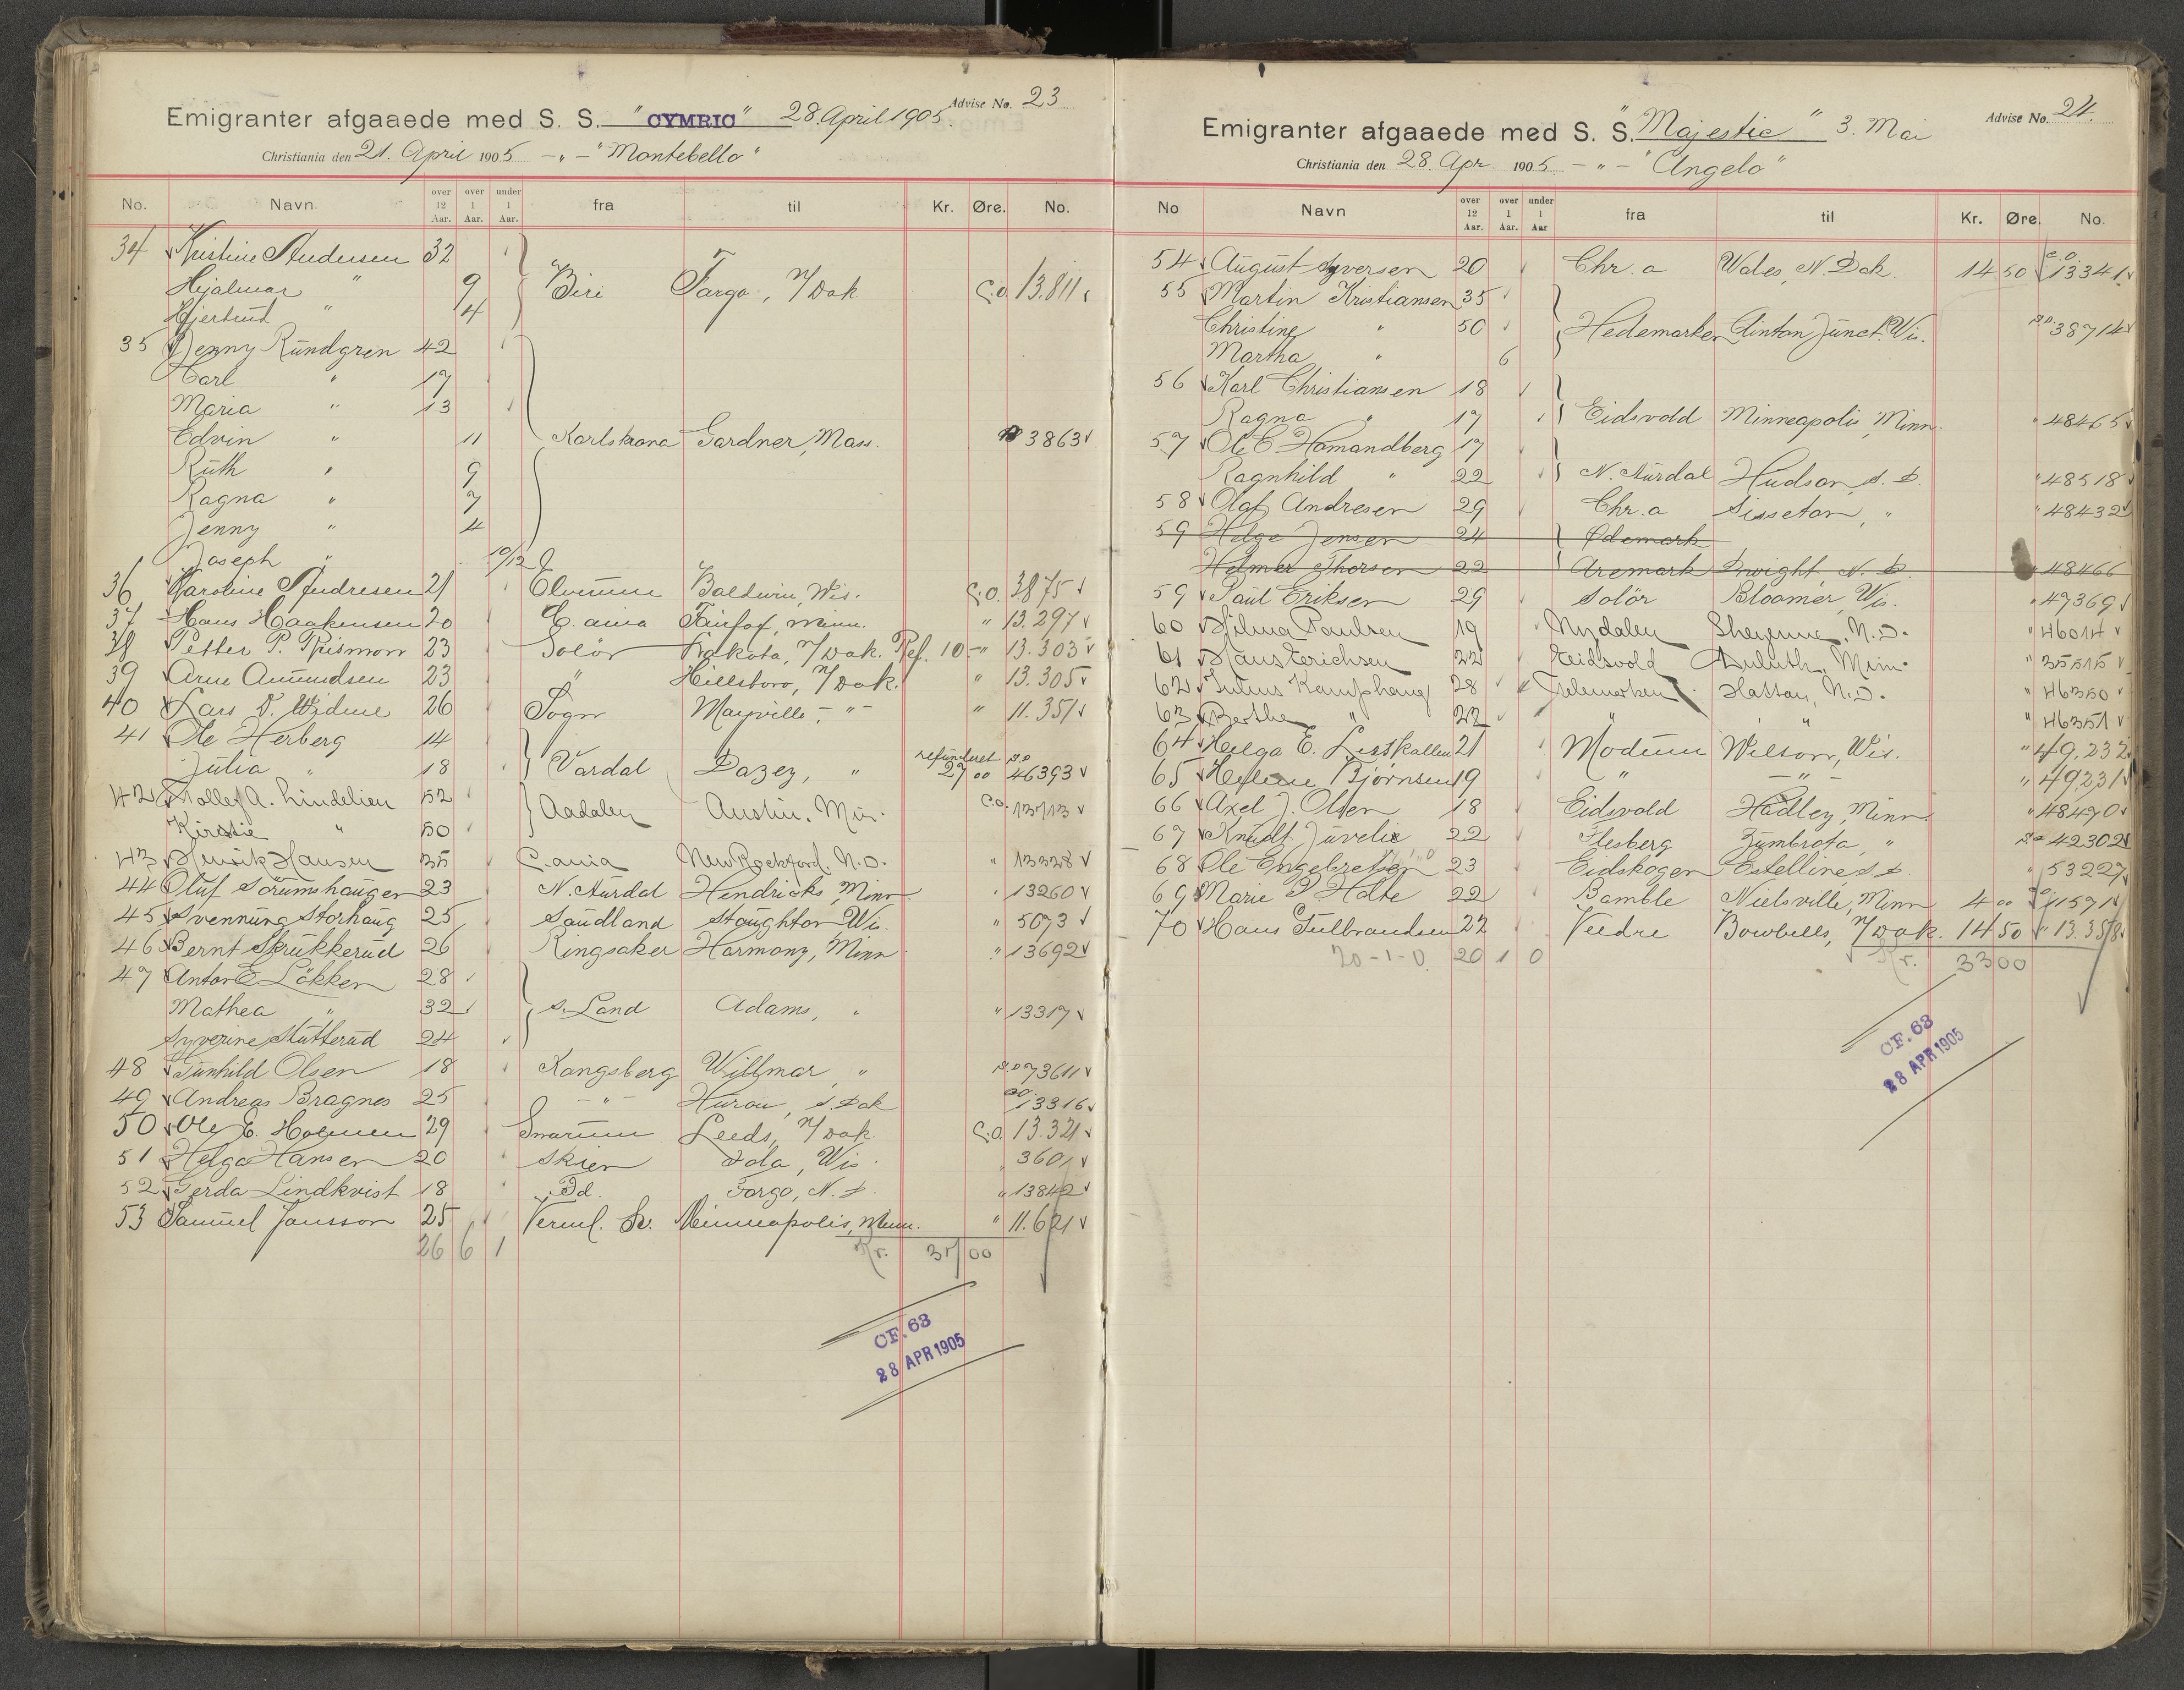 Emigranter afgaaede med S. S. "CYMRIC" 28. April 1905. Advise No. 23
Christiania den 21. April 1905 - „ - "Montebello"
No. Navn. over 12 Aar. over 1 Aar. under 1 Aar. fra til Kr. Øre. No.
34 Kristine Andersen 32
Hjalmar " 9 Biri Fargo, N/Dak. C.O. 13.811
Hjertrud " 4
35 Jenny Rundgren 42
Carl " 17
Maria " 13
Edvin " 11 Karlskrona Gardner, Mass. 3863
Ruth " 9
Ragna " 7
Jenny " 4
Joseph " 10/12
36 Karoline Andresen 21 Elverum Baldwin, Wis. C.O. 3875
37 Hans Haakensen 20 C. ania Fairfax, Minn. " 13.297
38 Petter P. Rismon 23 Solör Lakota, N/Dak. Ref. 10.- " 13.303
39 Arne Amundsen 23 " Hillsboro, N/Dak. " 13.305
40 Lars V. Widme 26 Sogn Mayville - " - " 11.351
41 Ole Herberg 14
Julia " 18 Vardal Dazey, " refunderet 27 00 P.P. 46393
42 Tollef A. Lindelien 52 Aadalen Austin, Min. C.O. 13713
Kirstie " 50
43 Henrik Hansen 35 C. ania New Rockford, N.D. " 13328
44 Oluf Sörumshaugen 23 N. Aurdal Hendricks, Minn. " 13260
45 Svennung Storhaug 25 Saudland Stoughton Wis. " 5073
46 Bernt Skrukkerud 26 Ringsaker Harmony, Minn " 13692
47 Anton E Lökken 28
Mathea " 32 S. Land Adams, " " 13317
Syverine Stutterud 24
48 Gunhild Olsen 18 Kongsberg Willmar, " P.P. 73611
49 Andreas Bragnes 25 - " - Huron, S. Dak C.O. 13316
50 Ole E. Holmen 29 Snarum Leeds, N/Dak. C.O. 13.321
51 Helga Hansen 20 Skien Iola, Wis. " 3601
52 Gerda Lindkvist 18 Id. Fargo, N. D. " 13842
53 Samuel Jansson 25 Verml. Sv. Minneapolis, Minn. " 11.621
26 6 1 Kr. 37 00
CF. 63
28 APR 1905
Emigranter afgaaede med S. S. "Majestic" 3. Mai Advise No. 24.
Christiania den 28. Apr. 1905 - „ - "Angelo"
No Navn over 12 Aar. over 1 Aar. under 1 Aar fra til Kr. Øre. No.
54 August Syversen 20 Chr. a Wales, N. Dak. 14 50 C.O. 13341
55 Martin Kristiansen 35
Christine " 50 Hedemarken Clinton Junct. Wis. P.P. 38714
Martha " 6
56 Karl Christiansen 18
Ragna " 17 Eidsvold Minneapolis Minn. " 48465
57 Ole E Homandberg 17
Ragnhild " 22 N. Aurdal Hudson, S. D. " 48518
58 Olaf Andresen 29 Chr. a Sisseton, " " 48432
59 Helge Jensen 24 Ødemark
Helmer Thorsen 22 Aremark Dwight, N. D. " 48466
59 Paul Eriksen 29 Solör Bloomer, Wis. " 47369
60 Hilma Paulsen 19 Nydalen Sheyenne, N.D. " 46014
61 Hans Erichsen 22 Eidsvold Duluth, Minn. " 35515
62 Julius Kamphaug 28 Telemarken Hatton, N.D. " 46350
63 Berthe " 22 " " " 46351
64 Helga E. Lisskallen 21 Modum Wilson, Wis. " 49,232
65 Helene Bjørnsen 19 " - " - " 49,231
66 Axel J. Olsen 18 Eidsvold Hadley, Minn. " 48470
67 Knudt Juvelie 22 Flesberg Zumbrota, " P.P. 42302
68 Ole Engebretsen 23 Eidskogen Estelline, S. D. " 53227
69 Marie P. Holte 22 Bamble Nielsville, Minn 4 00 C.O. 11571
70 Hans Gulbrandsen 22 Veedre Bowbells, N/Dak. 14 50 " 13.358
20 - 1 - 0. 20 1 0 Kr. 33 00
CF. 63
28 APR 1905